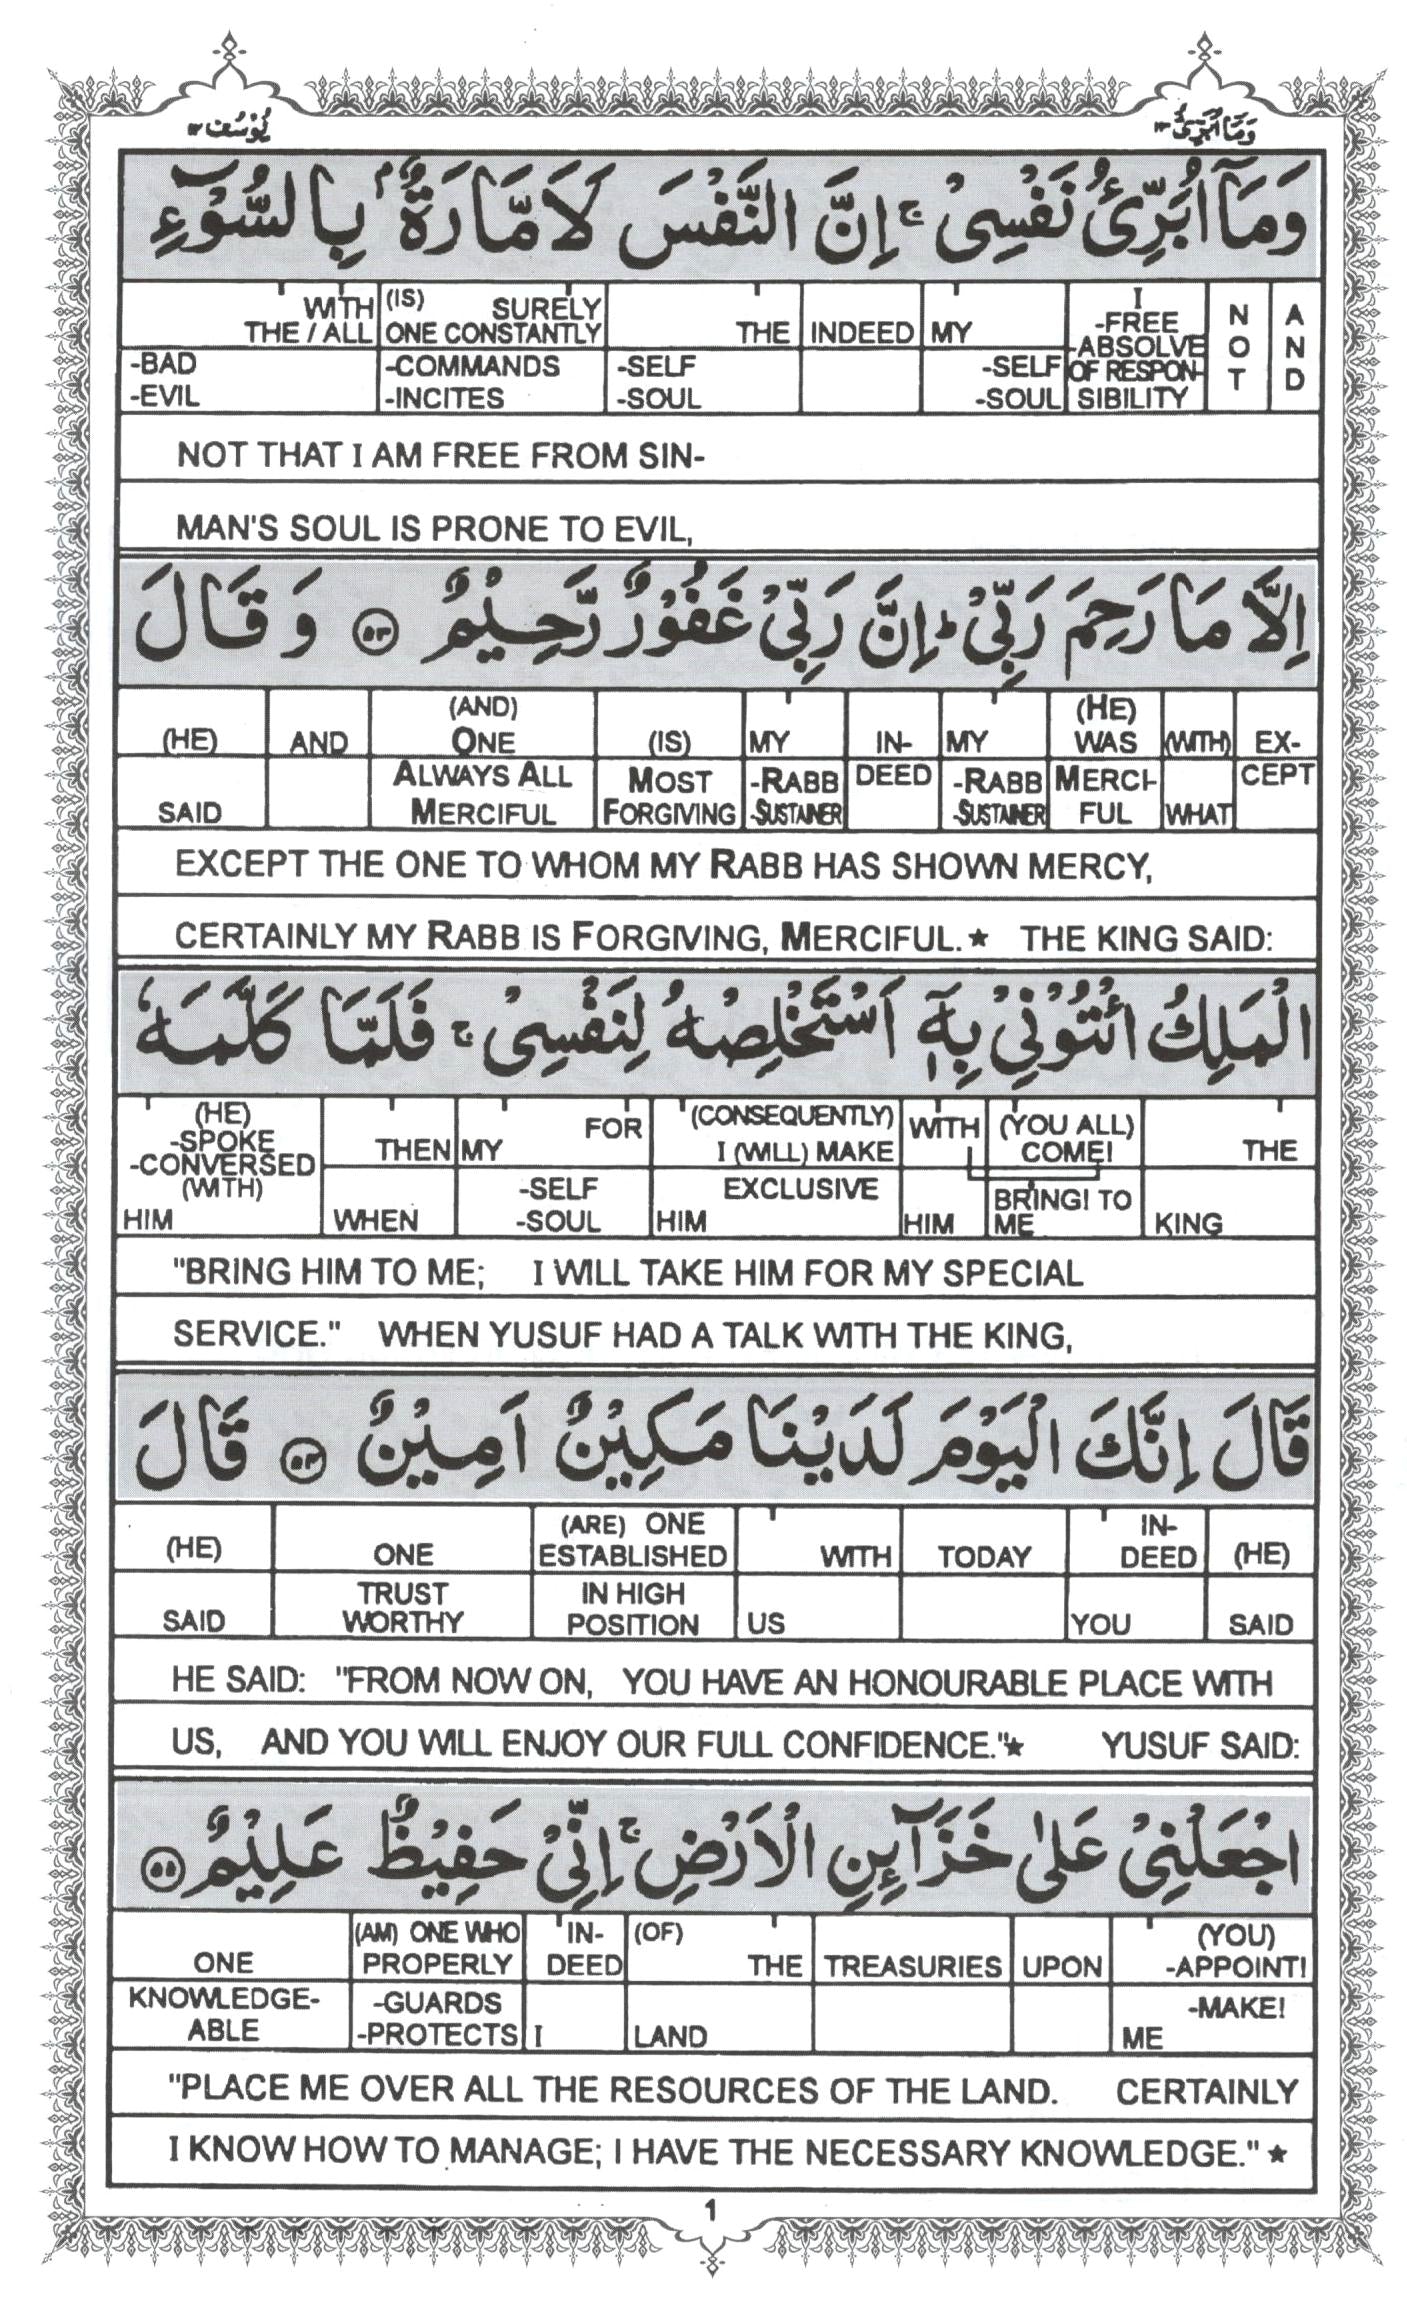 يُوسُف ١٢
وَمَا أُبَرِّئُ ١٣
وَمَاۤ اُبَرِّئُ نَفْسِیْ ۚ اِنَّ النَّفْسَ لَاَمَّارَةٌۢ بِالسُّوْٓءِ
WITH THE / ALL (IS) SURELY ONE CONSTANTLY THE INDEED MY I -FREE -ABSOLVE OF RESPON- SIBILITY NOT AND
-BAD -EVIL -COMMANDS -INCITES -SELF -SOUL -SELF -SOUL
NOT THAT I AM FREE FROM SIN-
MAN'S SOUL IS PRONE TO EVIL,
اِلَّا مَا رَحِمَ رَبِّیْ ؕ اِنَّ رَبِّیْ غَفُوْرٌ رَّحِیْمٌ ۝۵۳ وَ قَالَ
(HE) AND (AND) ONE (IS) MY IN- MY (HE) WAS (WITH) EX-
SAID ALWAYS ALL MERCIFUL MOST FORGIVING -RABB -SUSTAINER DEED -RABB -SUSTAINER MERCI- FUL WHAT CEPT
EXCEPT THE ONE TO WHOM MY RABB HAS SHOWN MERCY,
CERTAINLY MY RABB IS FORGIVING, MERCIFUL.★ THE KING SAID:
الْمَلِكُ ائْتُوْنِیْ بِهٖۤ اَسْتَخْلِصْهُ لِنَفْسِیْ ۚ فَلَمَّا كَلَّمَهٗ
(HE) -SPOKE -CONVERSED (WITH) THEN MY FOR (CONSEQUENTLY) I (WILL) MAKE WITH (YOU ALL) COME! THE
HIM WHEN -SELF -SOUL EXCLUSIVE HIM HIM BRING! TO ME KING
"BRING HIM TO ME; I WILL TAKE HIM FOR MY SPECIAL
SERVICE." WHEN YUSUF HAD A TALK WITH THE KING,
قَالَ اِنَّكَ الْیَوْمَ لَدَیْنَا مَكِیْنٌ اَمِیْنٌ ۝۵۴ قَالَ
(HE) ONE (ARE) ONE ESTABLISHED WITH TODAY IN- DEED (HE)
SAID TRUST WORTHY IN HIGH POSITION US YOU SAID
HE SAID: "FROM NOW ON, YOU HAVE AN HONOURABLE PLACE WITH
US, AND YOU WILL ENJOY OUR FULL CONFIDENCE."★ YUSUF SAID:
اجْعَلْنِیْ عَلٰی خَزَآىِٕنِ الْاَرْضِ ۚ اِنِّیْ حَفِیْظٌ عَلِیْمٌ ۝۵۵
ONE (AM) ONE WHO PROPERLY IN- DEED (OF) THE TREASURIES UPON (YOU) -APPOINT!
KNOWLEDGE- ABLE -GUARDS -PROTECTS I LAND -MAKE! ME
"PLACE ME OVER ALL THE RESOURCES OF THE LAND. CERTAINLY
I KNOW HOW TO MANAGE; I HAVE THE NECESSARY KNOWLEDGE." ★
1